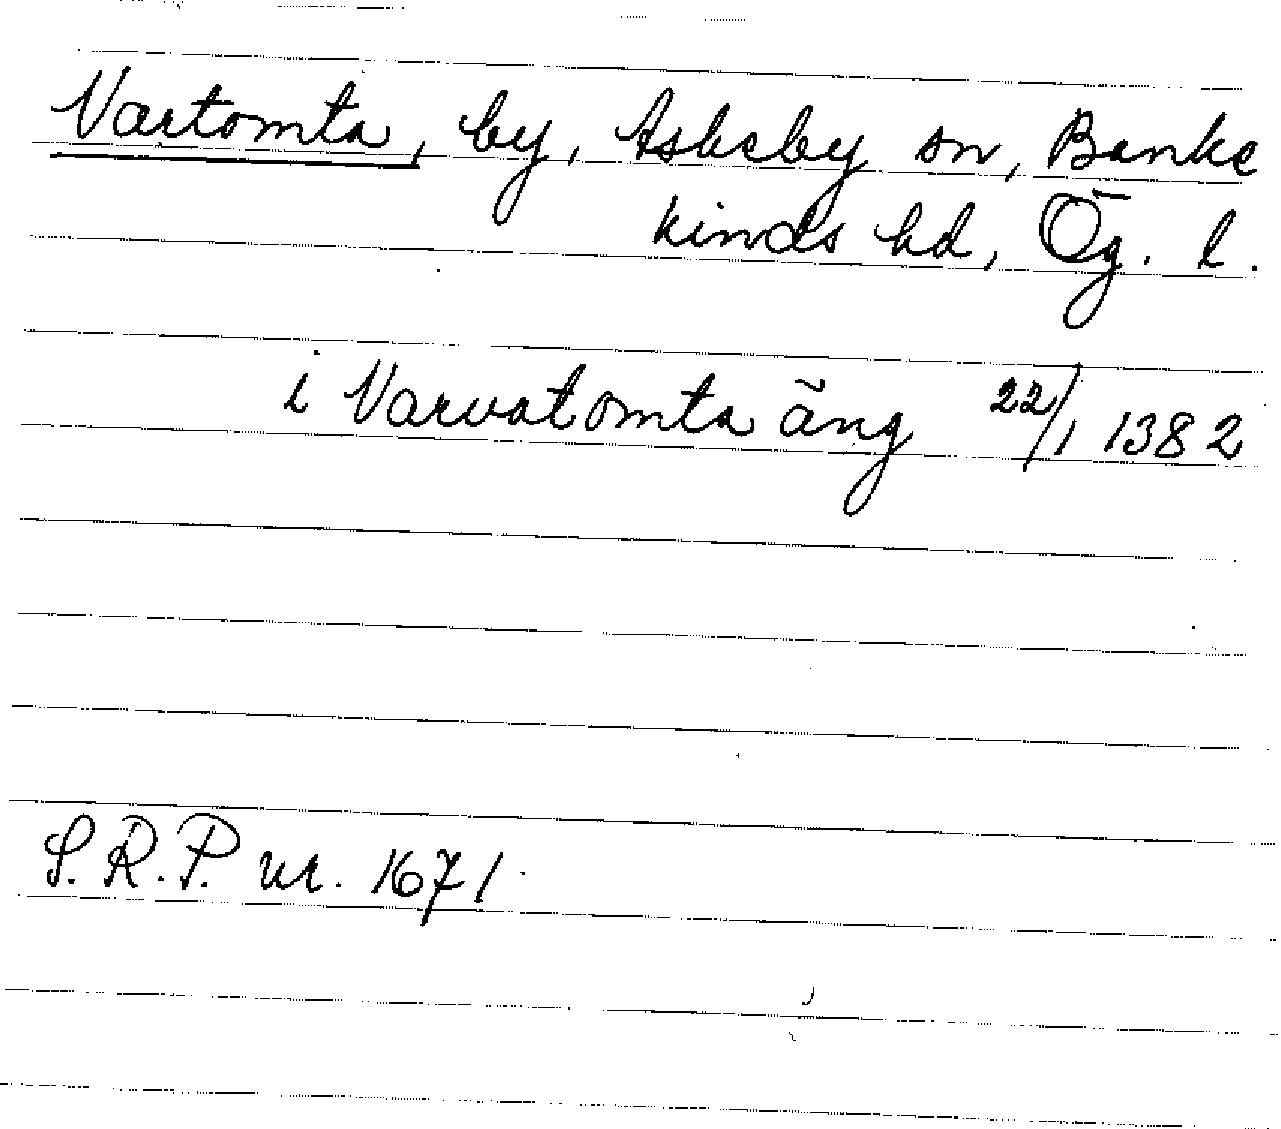 Vartomta, by, Askeby sn, Banke
kinds hd, Ög. l.
i Varvatomta äng 22/1 1382
S.R.P. nr. 1671.